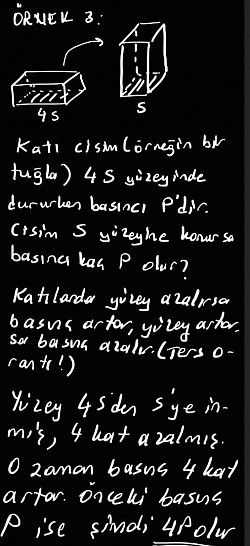 ÖRNEK 3:
4S
S
Katı cisim (örneğin bir
tuğla) 4S yüzeyinde
dururken basıncı P'dir.
Cisim S yüzeyine konursa
basıncı kaç P olur?
Katılarda yüzey azalırsa
basınç artar, yüzey artar-
sa basınç azalır. (Ters o-
rantı!)
Yüzey 4S'den S'ye in-
miş, 4 kat azalmış.
O zaman basınç 4 kat
artar. Önceki basınç
P ise şimdi 4P olur